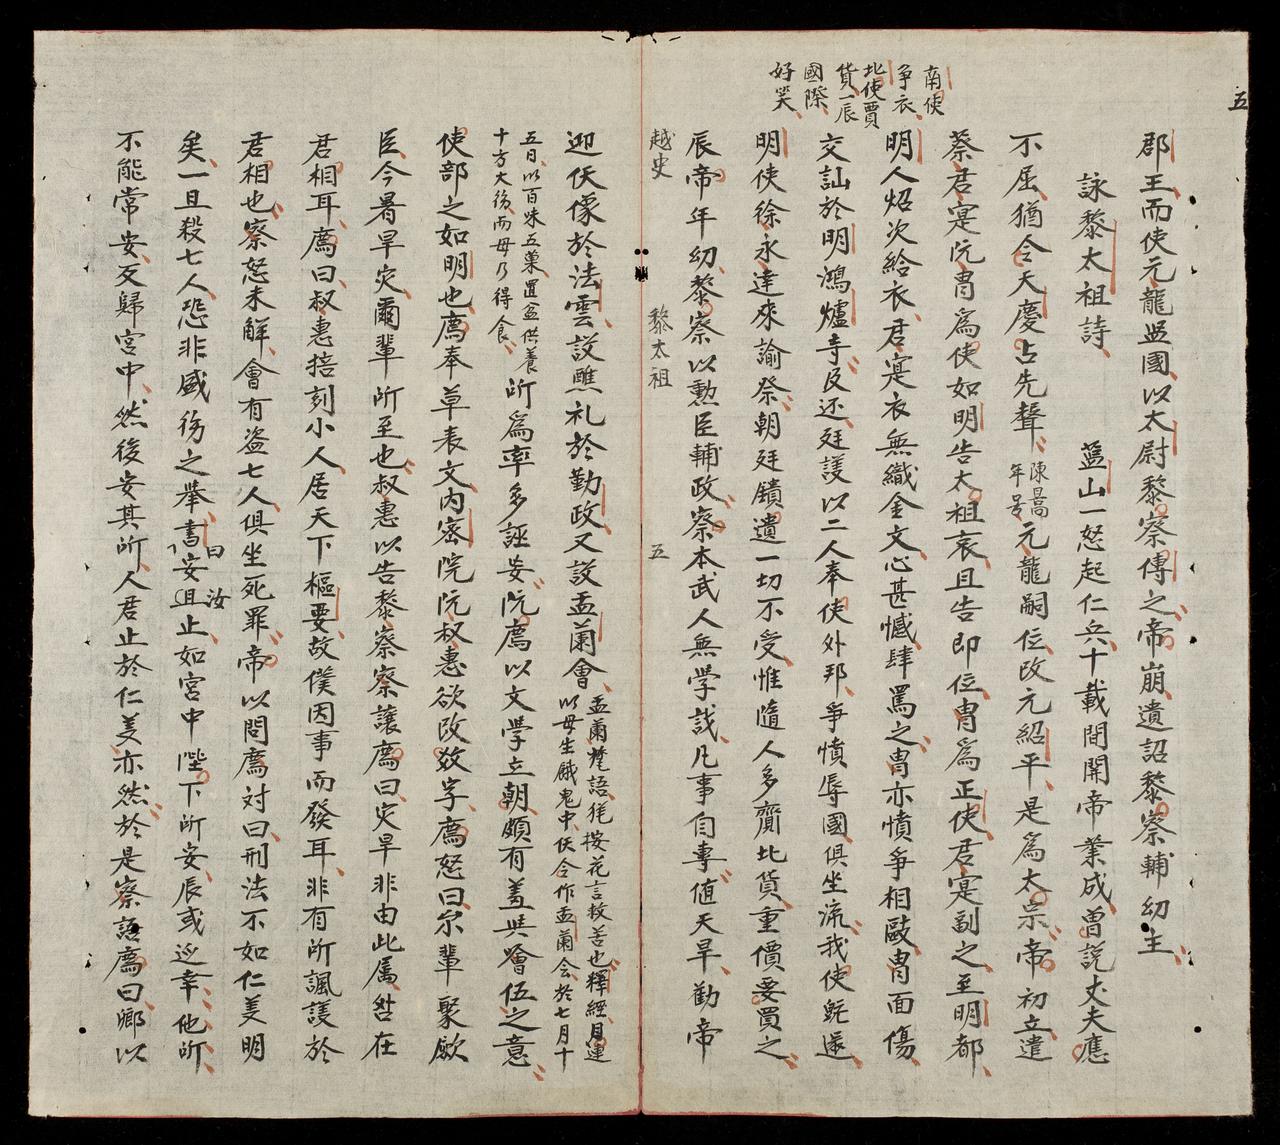 五
南使
爭衣
北使賈
貨一辰
國際
好笑
郡王而使元龍監國以太尉黎察傅之帝崩遺詔黎察輔幼主
詠黎太祖詩 藍山一怒起仁兵十載間開帝業成曾說丈夫應
不屈猶令天慶占先聲 陳暠年号 元龍嗣位改元紹平是爲太宗帝初立遣
蔡君寔阮胄爲使如明告太祖哀且告即位胄爲正使君寔副之至明都
明人炤次給衣君寔衣無織金文心甚憾肆罵之胄亦憤爭相毆胄面傷
交訕於明鴻臚寺及还廷議以二人奉使外邦爭憤辱國俱坐流我使旣還
明使徐永達來諭祭朝廷饋遺一切不受惟隨人多齎北貨重價要買之
辰帝年幼黎察以勲臣輔政察本武人無学識凡事自專値天旱勸帝
越史 黎太祖 五
迎佛像於法雲設醮礼於勤政又設盂蘭會 盂蘭梵語猶按花言救苦也釋經目連
以母生餓鬼中佛令作盂蘭会於七月十
五日以百味五菓置盆供養
十方大德而母乃得食 所爲率多誣妄阮廌以文学立朝頗有羞與噲伍之意
使部之如明也廌奉草表文内密院阮叔惠欲改数字廌怒曰尔輩聚歛
臣今暑旱灾爾輩所至也叔惠以告黎察察讓廌曰灾旱非由此属咎在
君相耳廌曰叔惠掊刻小人居天下樞要故僕因事而發耳非有所諷議於
君相也察怒未解會有盗七人俱坐死罪帝以問廌對曰刑法不如仁義明
矣一旦殺七人恐非盛德之舉書曰安汝止如宮中陛下所安辰或巡幸他所
不能常安反歸宮中然後安其所人君止於仁義亦然於是察語廌曰卿以